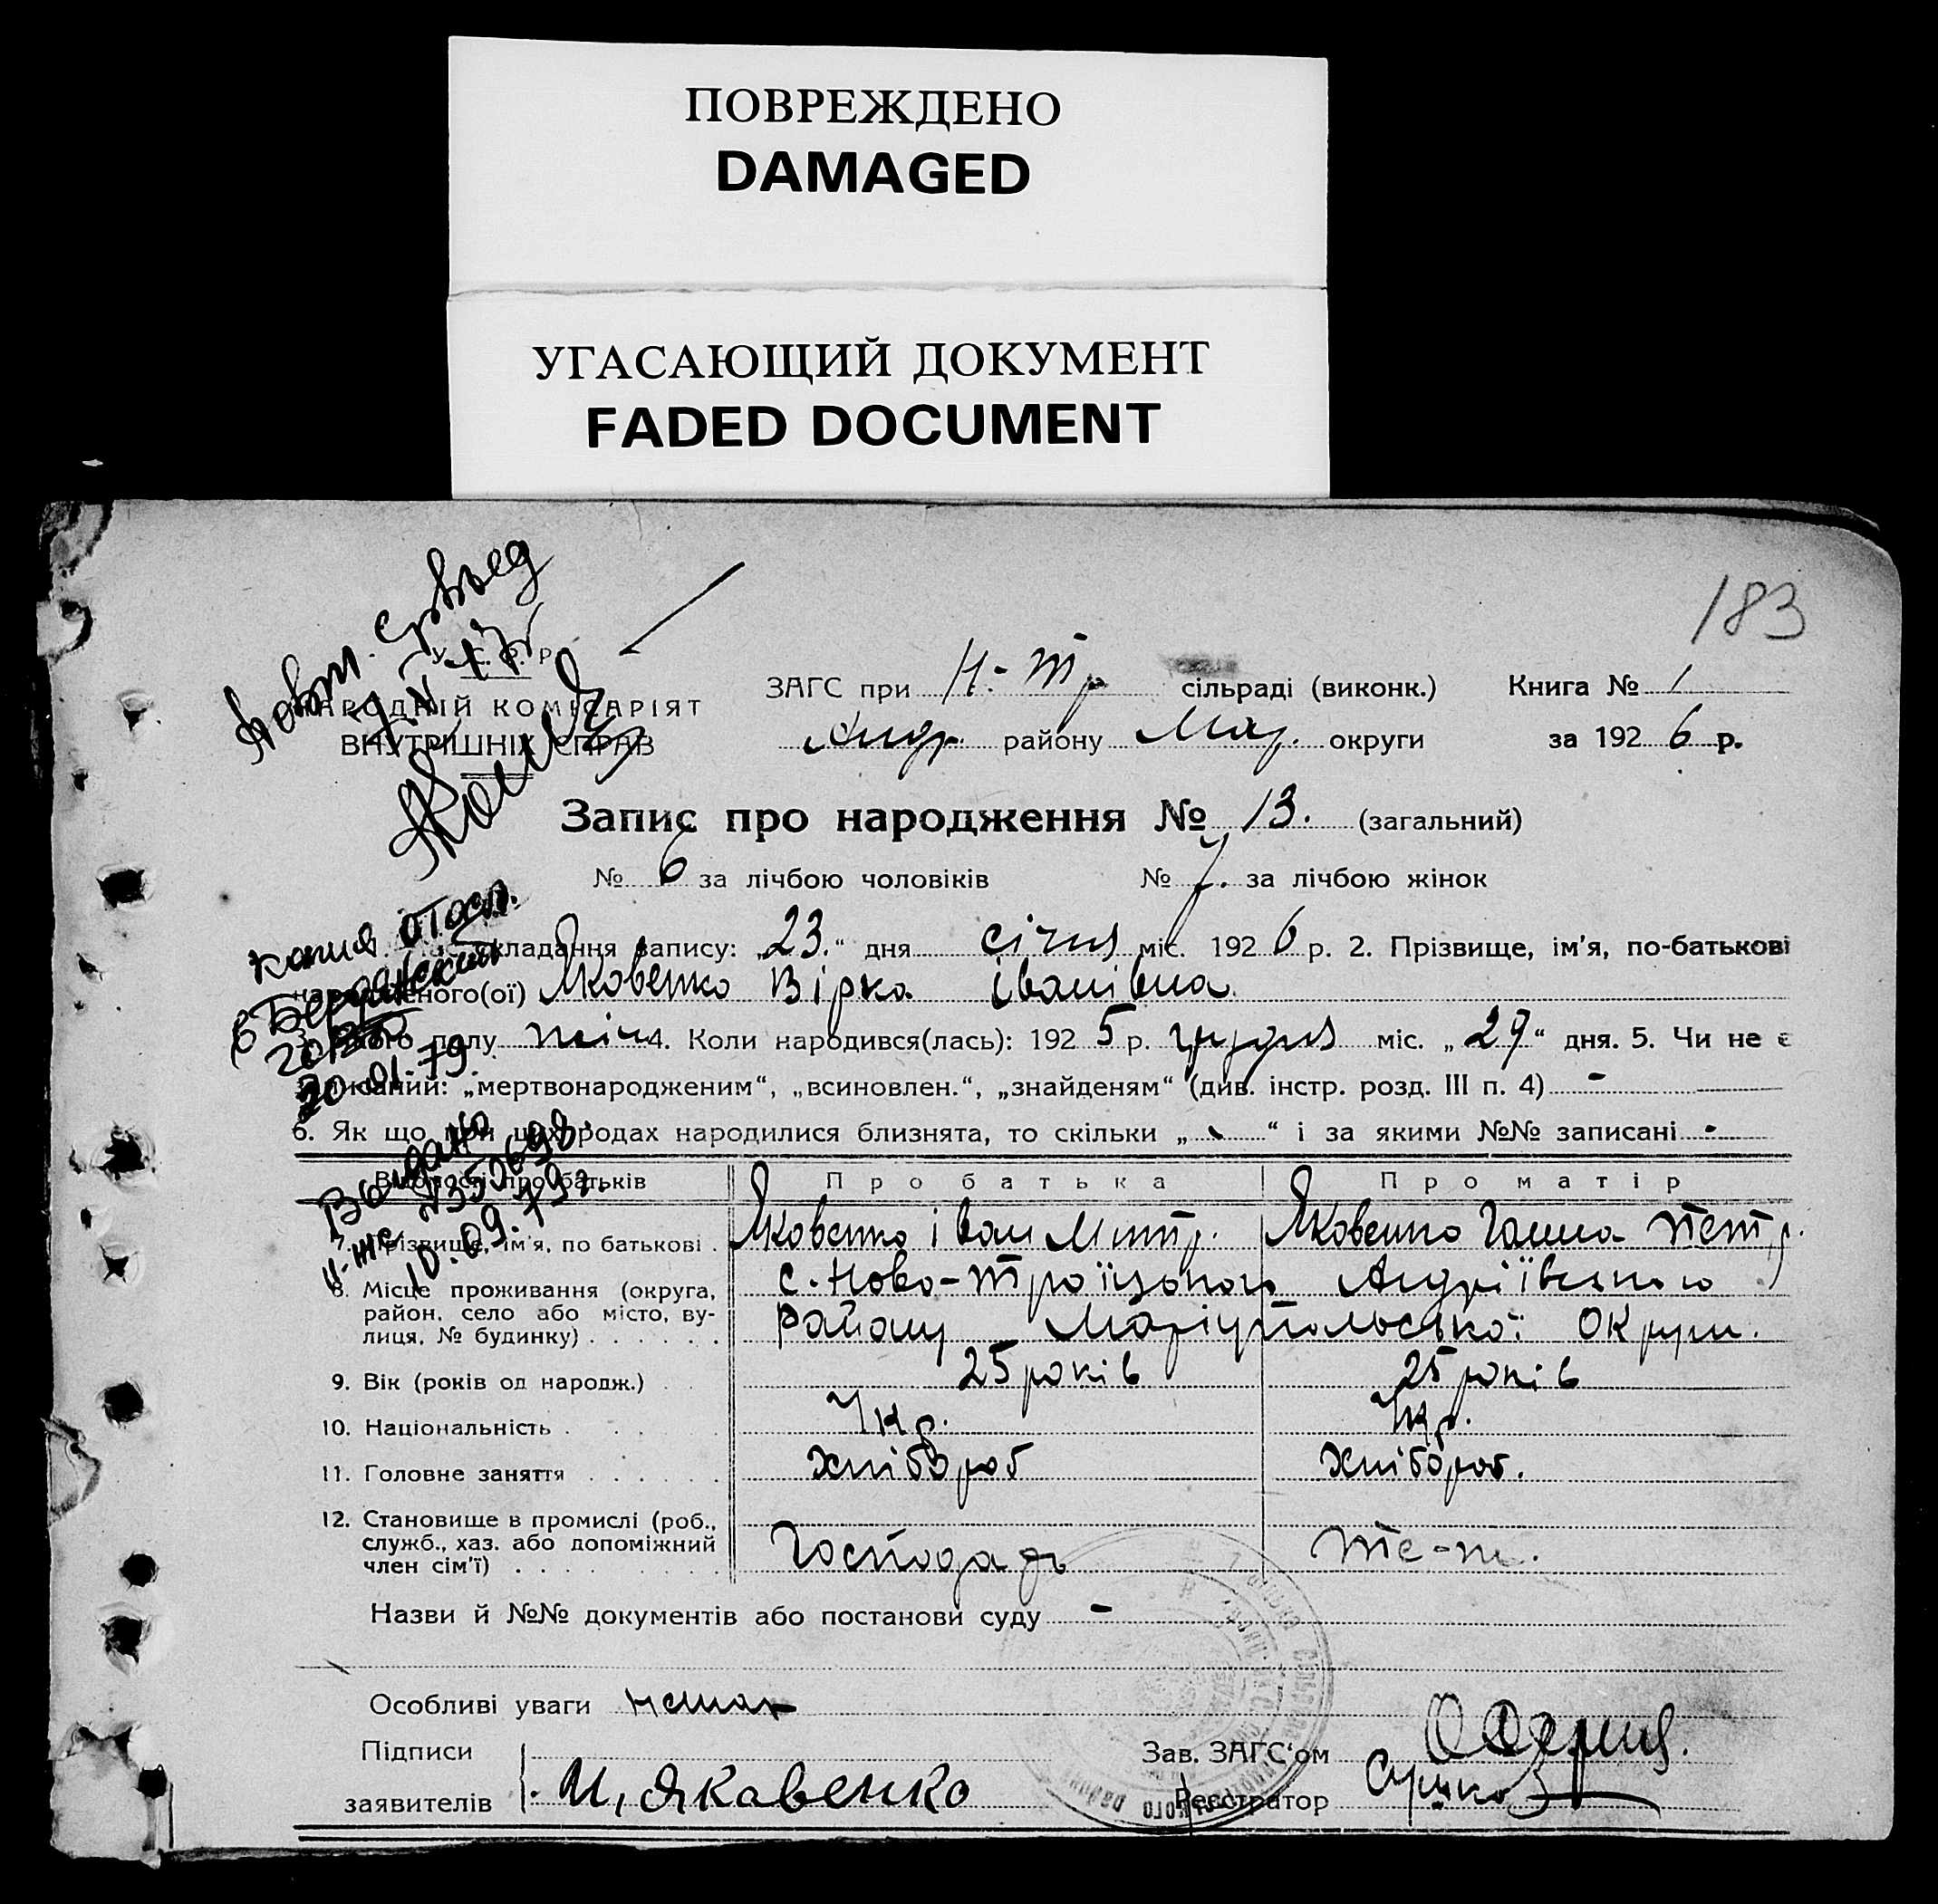 ПОВРЕЖДЕНО
DAMAGED
УГАСАЮЩИЙ ДОКУМЕНТ
FADED DOCUMENT
183
У. С. Р. Р.
НАРОДНІЙ КОМІСАРІЯТ
ВНУТРІШНІХ СПРАВ
ЗАГС при Н.-Тр сільраді (виконк.) Книга № 1
Андр. району Мар. округи за 1926 р.
Запис про народження № 13. (загальний)
№ 6 за лічбою чоловіків № 7. за лічбою жінок
копия отосл.
в Бердянский
20.01.79.
складання запису: „23.“ дня січня міс. 1926 р. 2. Прізвище, ім'я, по-батькові
народженого(ої) Яковенко Вірка Іванівна
3. полу жін 4. Коли народився(лась): 1925 р. грудня міс. „29“ дня. 5. Чи не є
записаний: „мертвонародженим“, „всиновлен.“, „знайденям“ (див. інстр. розд. III п. 4) -
6. Як що при цих родах народилися близнята, то скільки „-“ і за якими №№ записані -
Выдано
10.09.79г.
Відомості про батьків Про батька Про матір
7. Прізвище, ім'я, по батькові . Яковенко Іван Митр. Яковенко Ганна Петр.
8. Місце проживання (округа, с. Ново-Троїцького Андріївського
район, село або місто, ву-
лиця, № будинку) . . . . . . Району Маріупольської Округи.
9. Вік (років од народж.) . . 25 років 25 років
10. Національність . . . . . Укр. Укр.
11. Головне заняття . . . . . . хлібороб хлібороб.
12. Становище в промислі (роб.,
служб., хаз. або допоміжний
член сім'ї) . . . . . . . . . Господарь Те-ж.
Назви й №№ документів або постанови суду -
Особливі уваги немає
Підписи
заявителів И, Якавенко
Зав. ЗАГС'ом
Реєстратор